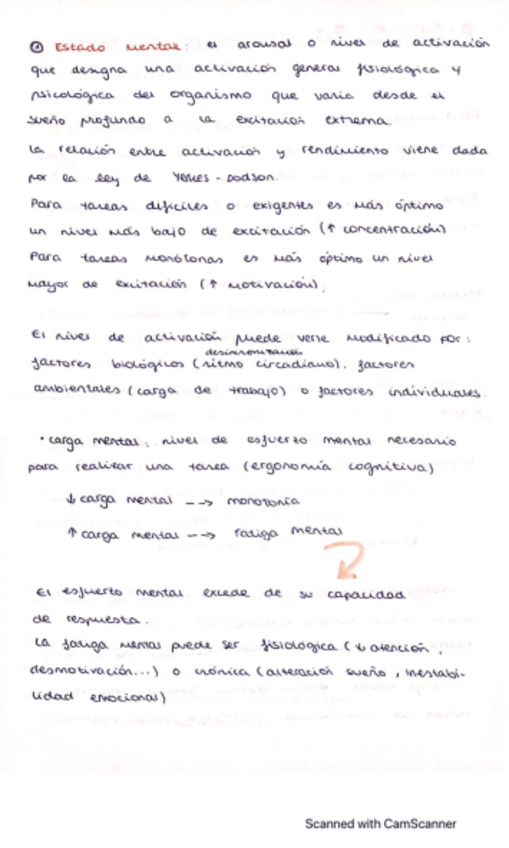 ① Estado mental: el arousal o nivel de activación
que designa una activación general fisiológica y
psicológica del organismo que varía desde el
sueño profundo a la excitación extrema.
La relación entre activación y rendimiento viene dada
por la ley de Yerkes-Dodson.
Para tareas difíciles o exigentes es más óptimo
un nivel más bajo de excitación (↑ concentración)
Para tareas monótonas es más óptimo un nivel
mayor de excitación (↑ motivación).
El nivel de activación puede verse modificado por:
desincronización
factores biológicos (ritmo circadiano). factores
ambientales (carga de trabajo) o factores individuales.
· carga mental: nivel de esfuerzo mental necesario
para realizar una tarea (ergonomía cognitiva)
↓ carga mental --> monotonía
↑ carga mental --> fatiga mental
El esfuerzo mental excede de su capacidad
de respuesta.
La fatiga mental puede ser fisiológica (↓ atención,
desmotivación...) o crónica (alteración sueño, inestabi-
lidad emocional)
Scanned with CamScanner